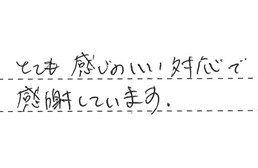 とても感じのいい対応で
感謝しています.